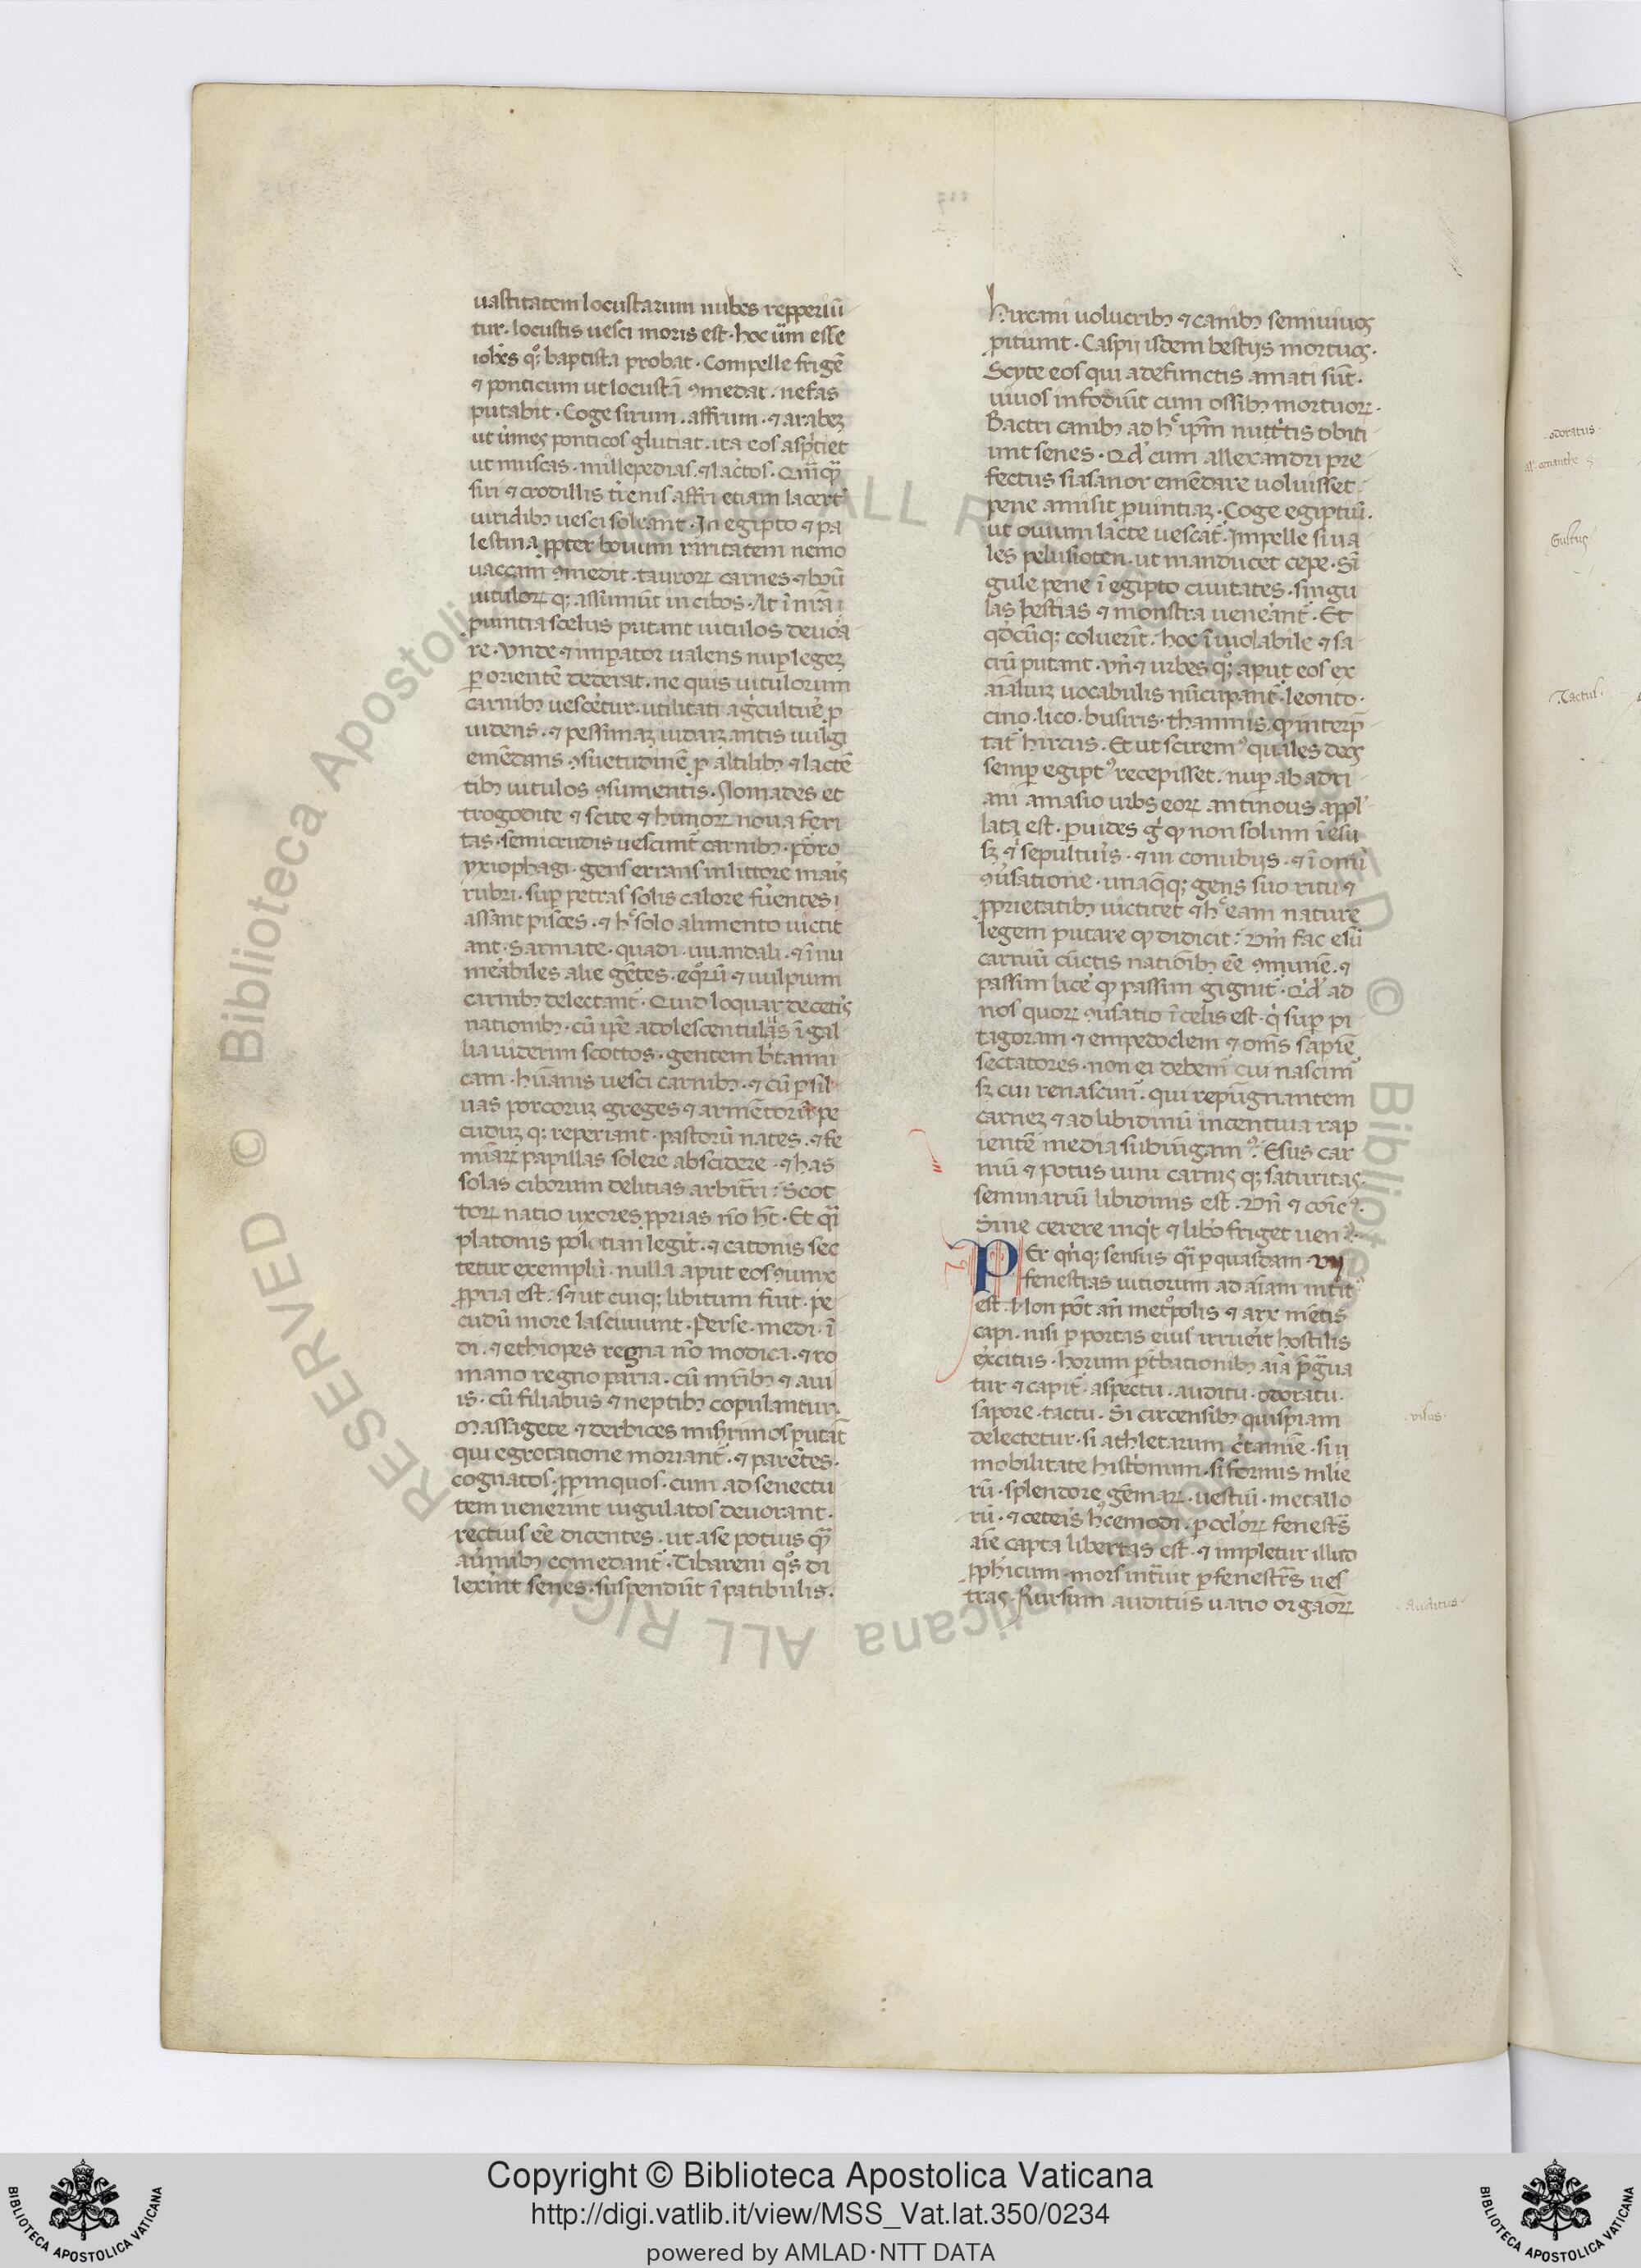 uastitatem locustarum nubes repperiū
tur. locustis uesci moris est. hoc uim esse
ioh̄es q°; baptista probat. Compelle frigē
⁊ ponticum ut locustā ꝯmedat. nefas
putabit. Coge sirum. affrum. ⁊ arabeꝫ
ut u̇mes ponticos glutiat. ita eos aspiciet
ut muscas. millepedias. ⁊ lac̓tos.
siri ⁊ crodillis affri etiam lacert̓
uiridibꝫ uesci soleant. In egipto ⁊ pa
lestina ꝓpter bouum raritatem nemo
uaccam ꝯmedit. tauroꝝ carnes ⁊ boū
uitulorꝝ q; assumūt in cibos. At ī nr̄a
ꝓuintia scelus putant uitulos deuora
re. Vnde ⁊ imperator ualens nuꝑ legeꝫ
ꝑ orientē dederat. ne quis uitulorum
carnibꝫ uesceretur. utilitati ag̓cultur̓e ꝓ
uidens. ⁊ pessimaꝫ iudaiꝫantis uulgi
emēdans ꝯsuetudinē ꝓ altilibꝫ ⁊ lactē
tibꝫ uitulos ꝯsumentis. Nomades et
trogodite ⁊ scite ⁊ hunoꝝ noua feri
tas. semicrudis uescunt̓ carnibꝫ. porro
yxiophagi. gens errans in littore mar̓is
rubri. suꝑ petras solis calore fer̓uentes
assant pisces. ⁊ hͦ solo alimento uictit
ant. Sarmate. quadi. uuandali. ⁊ īnu
merabiles alie gētes. equoꝝ ⁊ uulpium
carnibꝫ delectant̓. Quid loquar de cetis
nationibꝫ. cū ip̄e adolescentulus ī gal
lia uiderim scottos. gentem br̓tanni
cam. hūanis uesci carnibꝫ. ⁊ cū ꝑ sil
uas porcoruꝫ greges ⁊ armētorū pe
cuduꝫ q; reperiant. pastorū nates. ⁊ fe
minaꝝ papillas solere abscidere. ⁊ has
solas ciborum delitias arbitrari: Scot
toꝝ natio uxores ꝓprias nō ht̄. Et q̄i
platonis politian legit. ⁊ catonis sec
tetur exemplū. nulla aput eos ꝯiunx
ꝓpria est. sꝫ ut cuiq; libitum fuit. pe
cudū more lasciuiunt. Perse. medi. ī
di. ⁊ ethiopes regna nō modica. ⁊ ro
mano regno paria. cū mr̄ibꝫ ⁊ aui
is. cū filiabus ⁊ neptibꝫ copulantur.
Massagete ⁊ derbices miserrimos putāt
qui egrotatione moriant̓. ⁊ parētes.
cognatos. ꝓpinquos. cum ad senectu
tem uenerint iugulatos deuorant.
rectius eē dicentes. ut a se potius qͣꝫ
a uermibꝫ comedant̓. Tibareni qͦs di
lexerint senes. suspendūt ī patibulis.
hircani uolucribꝫ ⁊ canibꝫ semiuiuos
. Caspij isdem bestijs mortuos.
Scyte eos qui a defunctis amati sūt.
uiuos infodiūt cum ossibꝫ mortuoꝝ.
Bactri canibꝫ ad hͦ ip̄m nutritis obiti
unt senes. Qd̓ cum allexandri pre
fectus siasanor emēdare uoluisset.
pene amisit ꝓuintiaꝫ. Coge egiptiū.
ut ouium lacte uescat̓. Impelle si ua
les pelusioten. ut manducet cepe. Sī
gule pene ī egipto ciuitates. singu
las bestias ⁊ monstra uenerant̓. Et
qd̓cūq; coluerīt. hoc īuiolabile ⁊ sa
crū putant. Vn̄ ⁊ urbes q°; aput eos ex
aīaliuꝫ uocabulis nūcupant̓. leonto.
cino. lico. busiris. thamnis. qͦ interp̄
tat̓ hircus. Et ut sciremꝰ quales deos
semꝑ egiptꝰ recepisset. nuꝑ ab adri
ani amasio urbs eoꝝ antinous appl̓
lata est. ꝑuides g̓ qͦ non solum ī esu
sꝫ ⁊ ī sepultur̓is. ⁊ in conubijs. ⁊ ī om̄i
ꝯuersatione. unaq̄q; gens suo ritu ⁊
ꝓprietatibꝫ uictitet ⁊ hͦ eam nature
legem putare qͦ didicit: Verum fac esū
carniū cūctis nationibꝫ eē ꝯmunē. ⁊
passim licere qͦ passim gignit̓. Qd̓ ad
nos quoꝝ ꝯuersatio ī celis est. qͥ suꝑ pi
tagoram ⁊ empedoclem ⁊ om̄s sapiē
sectatores. non ei debemꝰ cui nascimꝰ
sꝫ cui renascimur. qui repūgnantem
carneꝫ ⁊ ad libidinū incentiua rap
ientē media subiugamꝰ. Esus car
niū ⁊ potus uini carnis q; saturitas.
seminariū libidinis est. Vn̄ ⁊ comicꝰ.
Sine cerere inqͥt ⁊ libero friget uenꝰ.
PEr qͥnq; sensus q̄i ꝑ quasdam VII
fenestras uitiorum ad aīam introit̓
est. Non pōt an̄ metropolis ⁊ arx mētis
capi. nisi ꝑ portas eius irruerit hostilis
exercitus. horum ꝑt̓bationibꝫ aīa p̄gua
tur ⁊ capit̓. aspectu. auditu. odoratu.
sapore. tactu. Si circensibꝫ quispiam
delectetur. si athletarum certamine. si
mobilitate histrionum. si formis mulie
rū. splendore gēmaꝝ. uestiū. metallo
rū. ⁊ ceteris hͥcemodi. ꝑ oculoꝝ fenestras
aīe capta libertas est. ⁊ impletur illud
ꝓpheticum. mors intrauit ꝑ fenestras ues
tras. Rursum auditus uario organoꝝ
. odoratus.
al. oenanthe
Gustus
Tactus.
. uisus.
. Auditus.
Copyright © Biblioteca Apostolica Vaticana
http://digi.vatlib.it/view/MSS_Vat.lat.350/0234
powered by AMLAD·NTT DATA
BIBLIOTECA APOSTOLICA VATICANA
BIBLIOTECA APOSTOLICA VATICANA